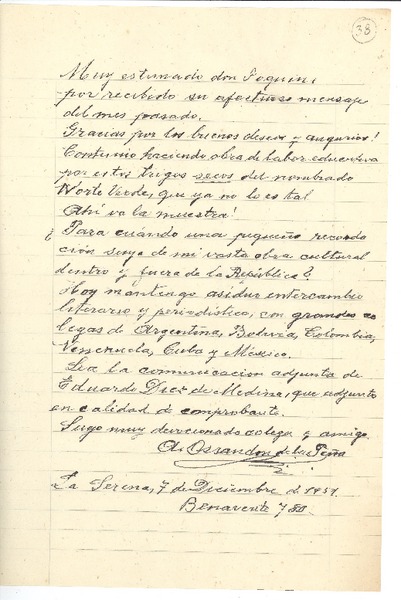 38
Muy estimado don Joaquin:
por recibido su afectuoso mensaje
del mes pasado.
Gracias por los buenos deseos y augurios!
Continúo haciendo obra de labor educativa
por estos trigos secos del nombrado
Norte Verde, que ya no lo es tal
Ahí va la muestra!
¿Para cuándo una pequeña recorda
ción suya de mi vasta obra cultural
dentro y fuera de la República?
Hoy mantengo asiduo intercambio
literario y periodístico, con grandes co
legas de Argentina, Bolivia, Colombia,
Venezuela, Cuba y México.
Lea la comunicación adjunta de
Eduardo Diez de Medina, que adjunto
en calidad de comprobante.
Suyo muy devocionado colega y amigo
Ossandon de la Peña
La Serena, 7 de Diciembre d.
Benavente